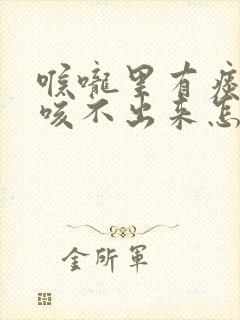 喉咙里有痰
咳不出来怎
金所军